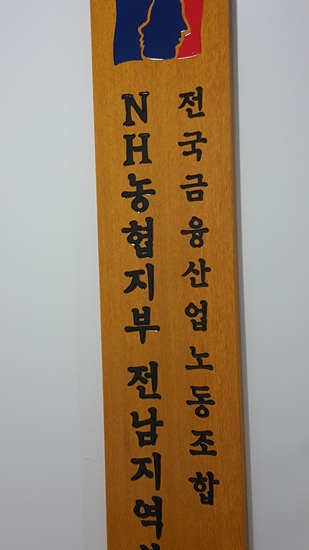 전국금융산업노동조합
NH농협지부 전남지역